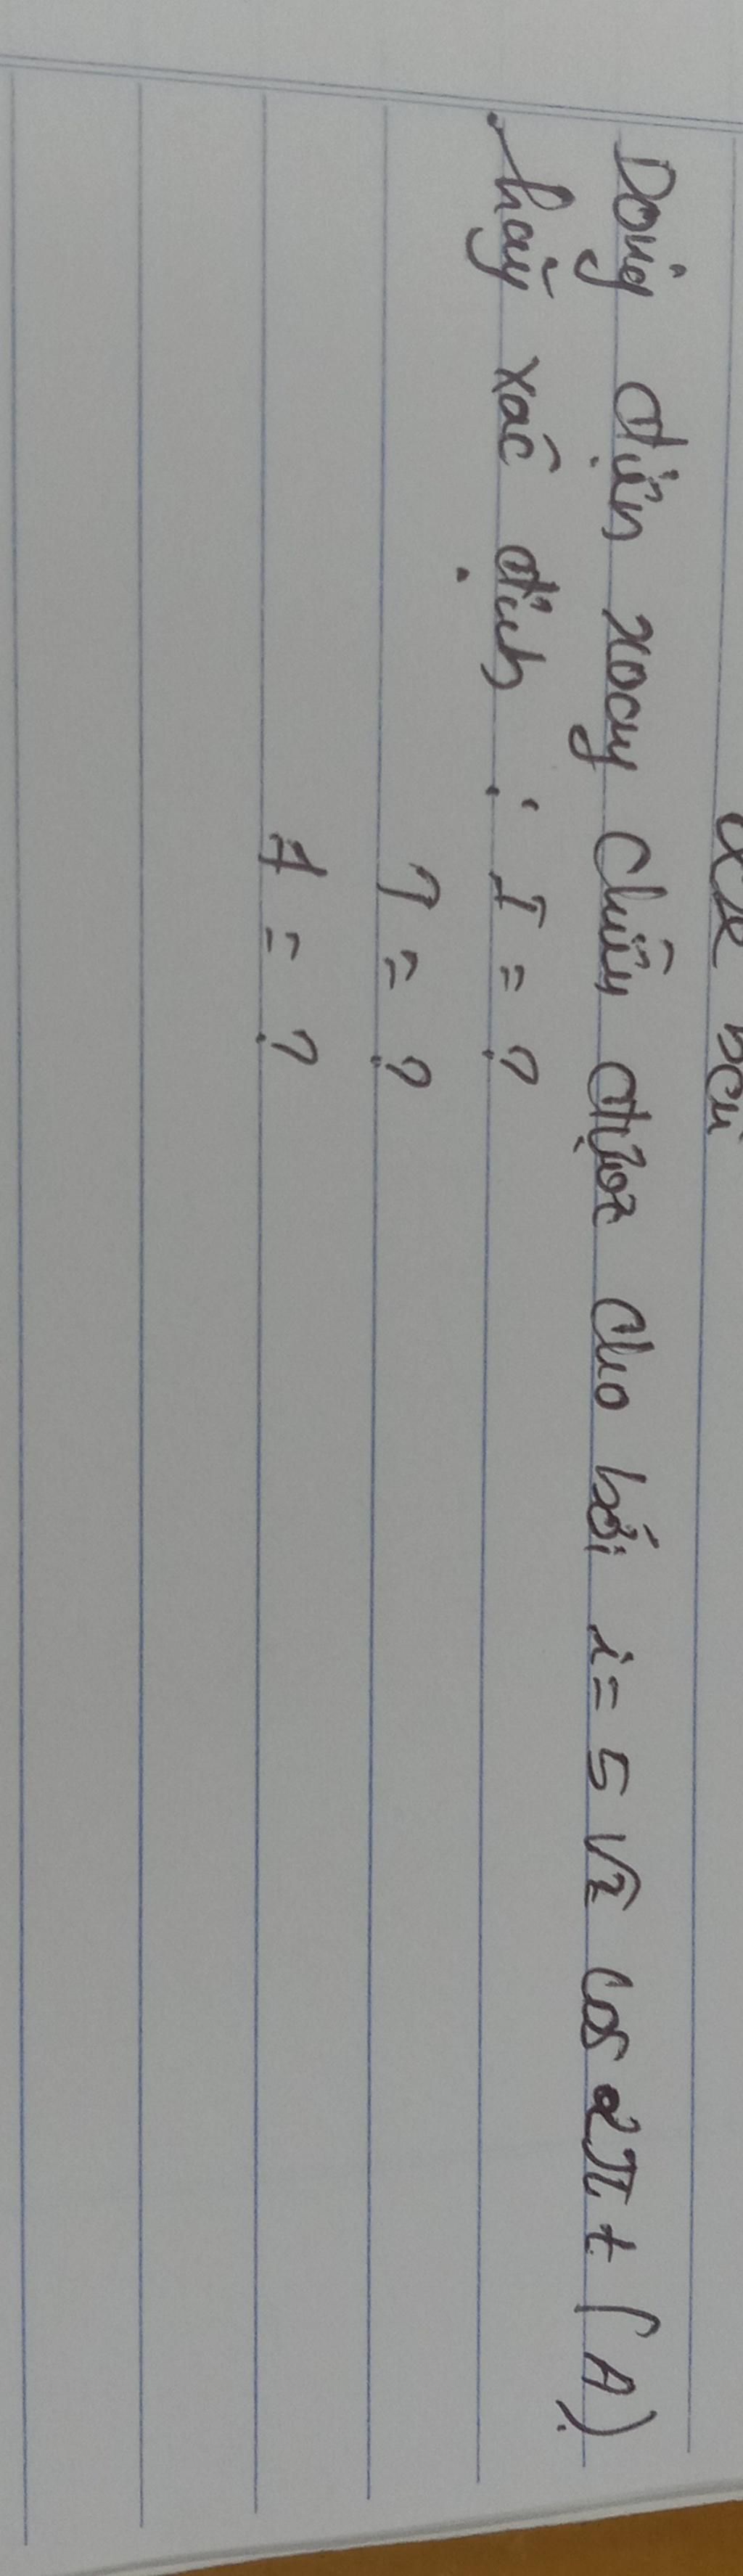 Dòng điện xoay chiều được cho bởi i = 5√2 cos 2πt (A).
hãy xác định : I = ?
T = ?
f = ?